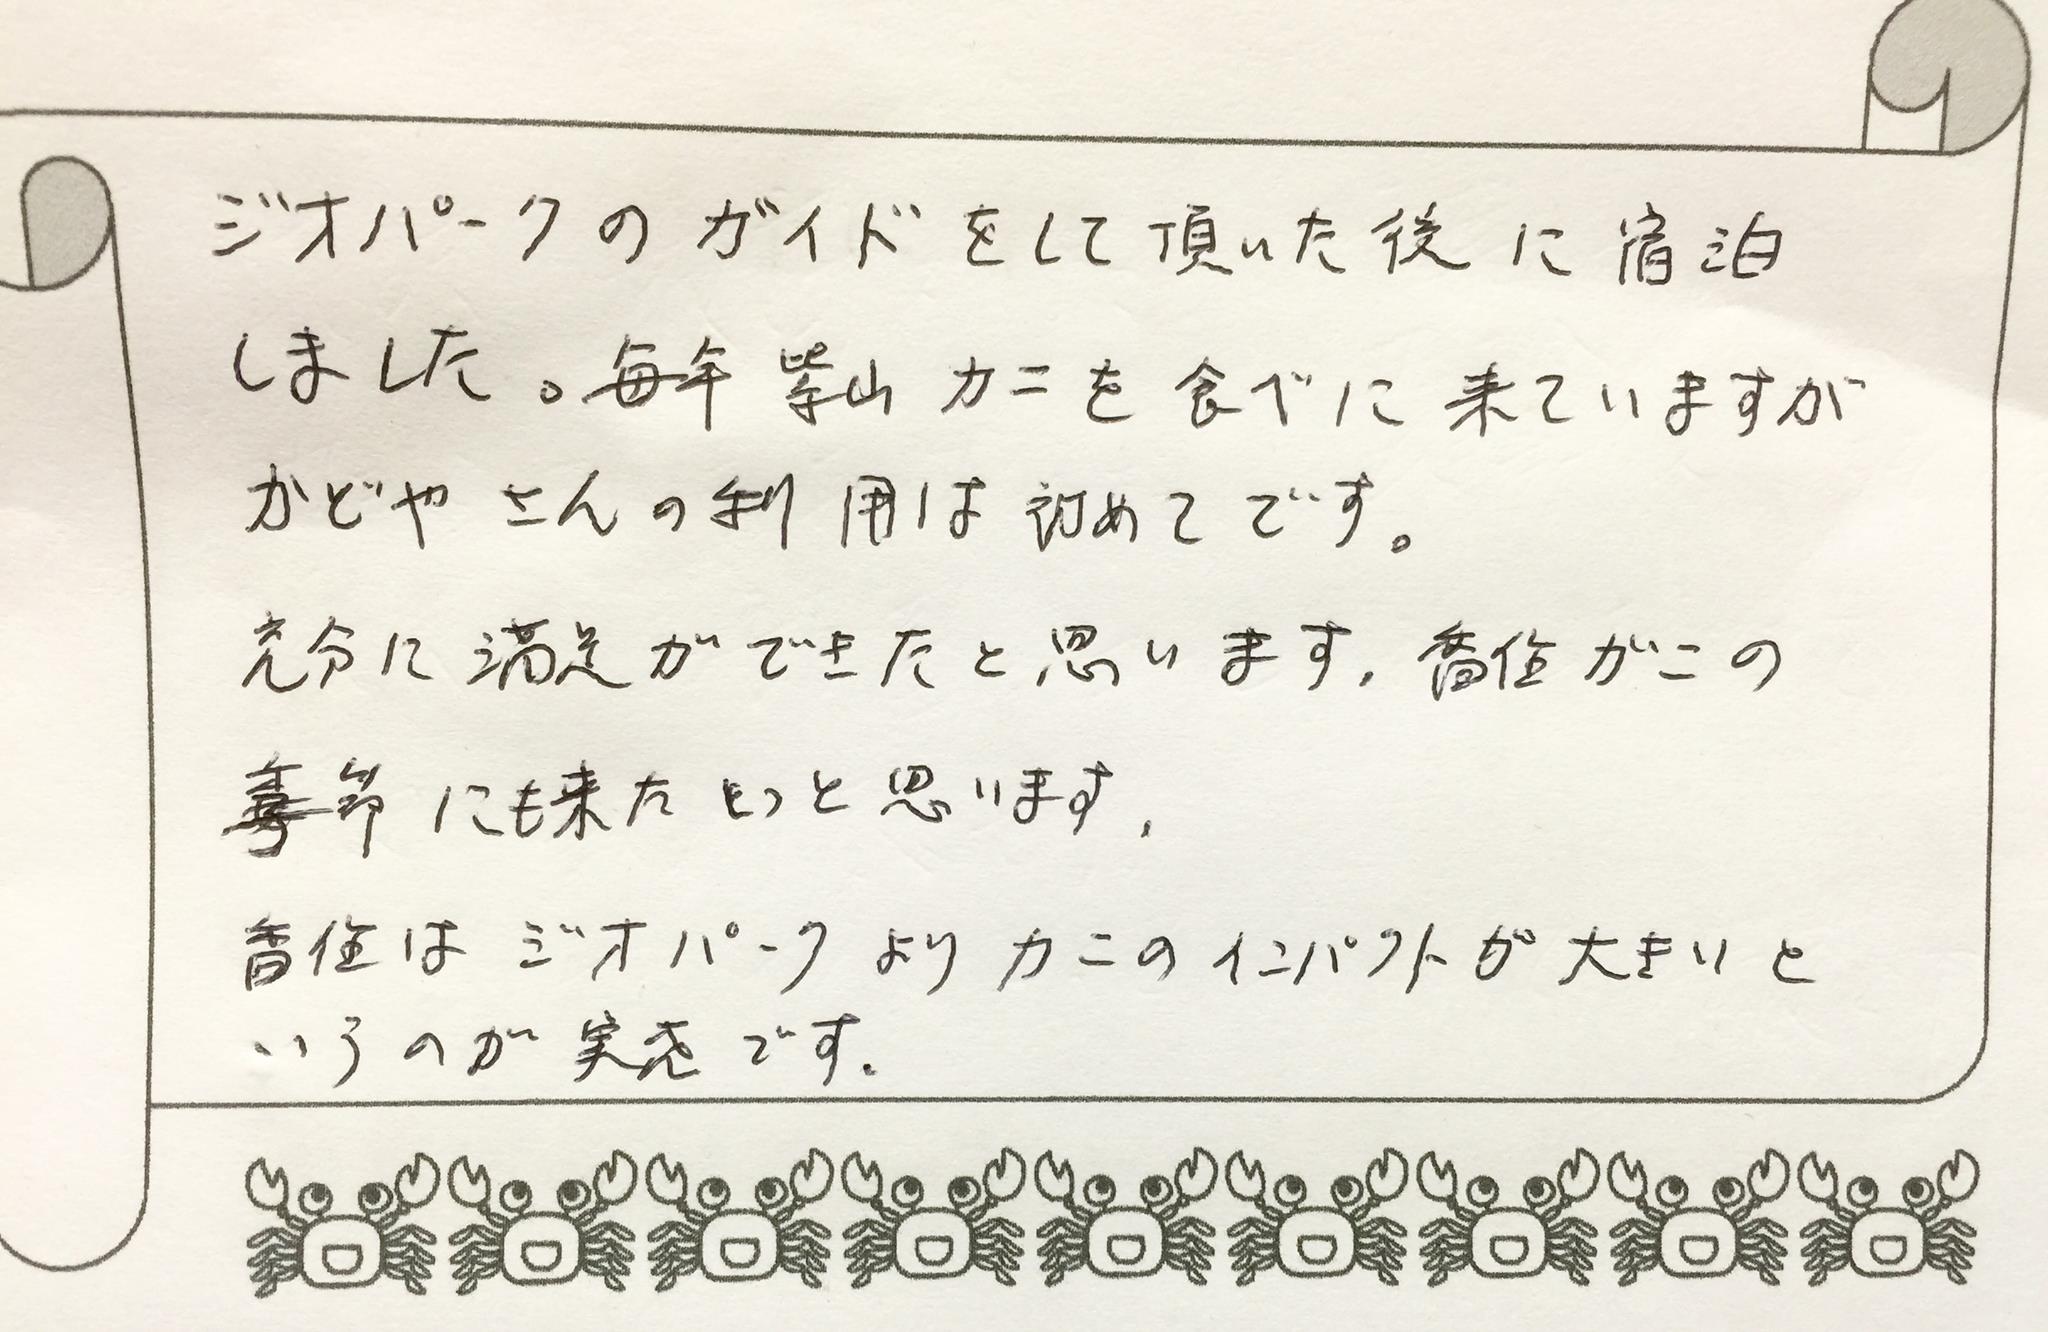 ジオパークのガイドをして頂いた後に宿泊
しました。毎年柴山カニを食べに来ていますが
かどやさんの利用は初めてです。
充分に満足ができたと思います。香住がこの
季節にも来たもっと思います。
香住はジオパークよりカニのインパクトが大きいと
いうのが実态です。